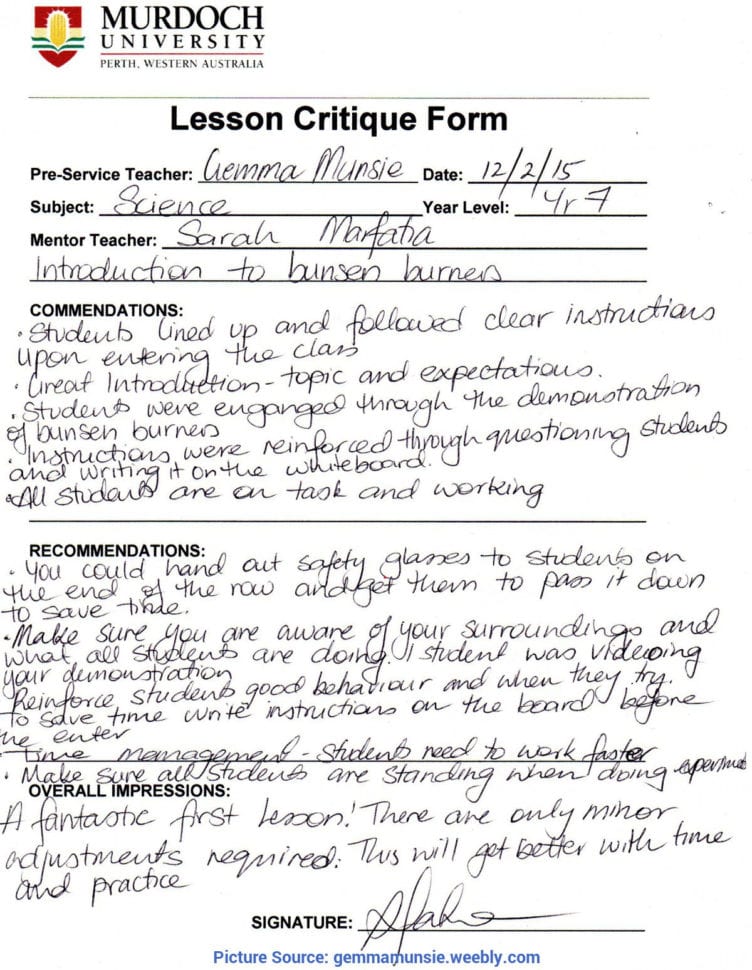 MURDOCH
UNIVERSITY
PERTH, WESTERN AUSTRALIA
Lesson Critique Form
Pre-Service Teacher: Gemma Munsie Date: 12/2/15
Subject: Science Year Level: Yr 7
Mentor Teacher: Sarah Marfatia
Introduction to bunsen burners
COMMENDATIONS:
• Students lined up and followed clear instructions
upon entering the class
• Great Introduction - topic and expectations.
• Students were enganged through the demonstration
of bunsen burners
• Instructions were reinforced through questioning students
and writing it on the whiteboard.
• All students are on task and working
RECOMMENDATIONS:
• You could hand out safety glasses to students on
the end of the row and get them to pass it down
to save time.
• Make sure you are aware of your surroundings and
what all students are doing. 1 student was videoing
your demonstration
Reinforce students good behaviour and when they try.
To save time write instructions on the board before
he enter
- Time management - students need to work faster
• Make sure all students are standing when doing
OVERALL IMPRESSIONS:
A fantastic first lesson! There are only minor
adjustments required. This will get better with time
and practice
SIGNATURE:
Picture Source: gemmamunsie.weebly.com